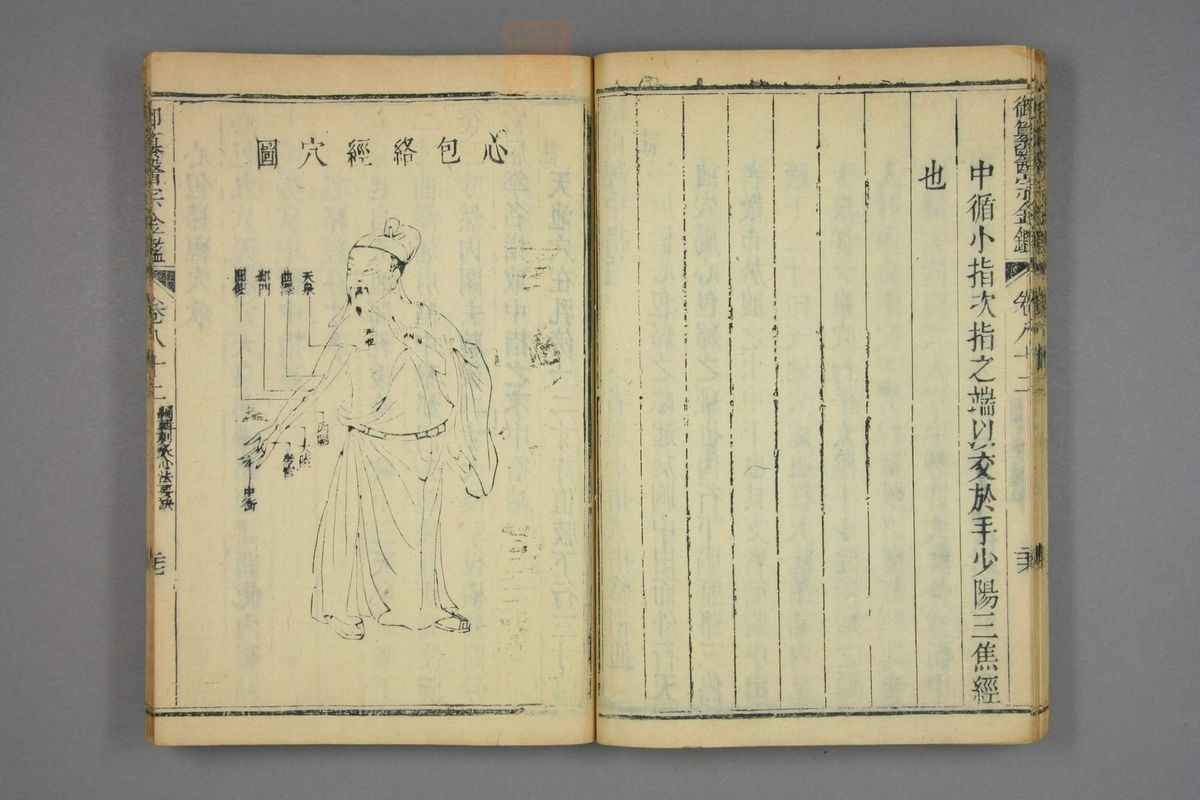 御纂醫宗金鑑 卷八十二
中循小指次指之端以交於手少陽三焦經
也
心包絡經穴圖
天泉
曲澤
郄門
間使
天池
內關
大陵
勞宮
中衝
御纂醫宗金鑑 卷八十二 編輯刺灸心法要訣